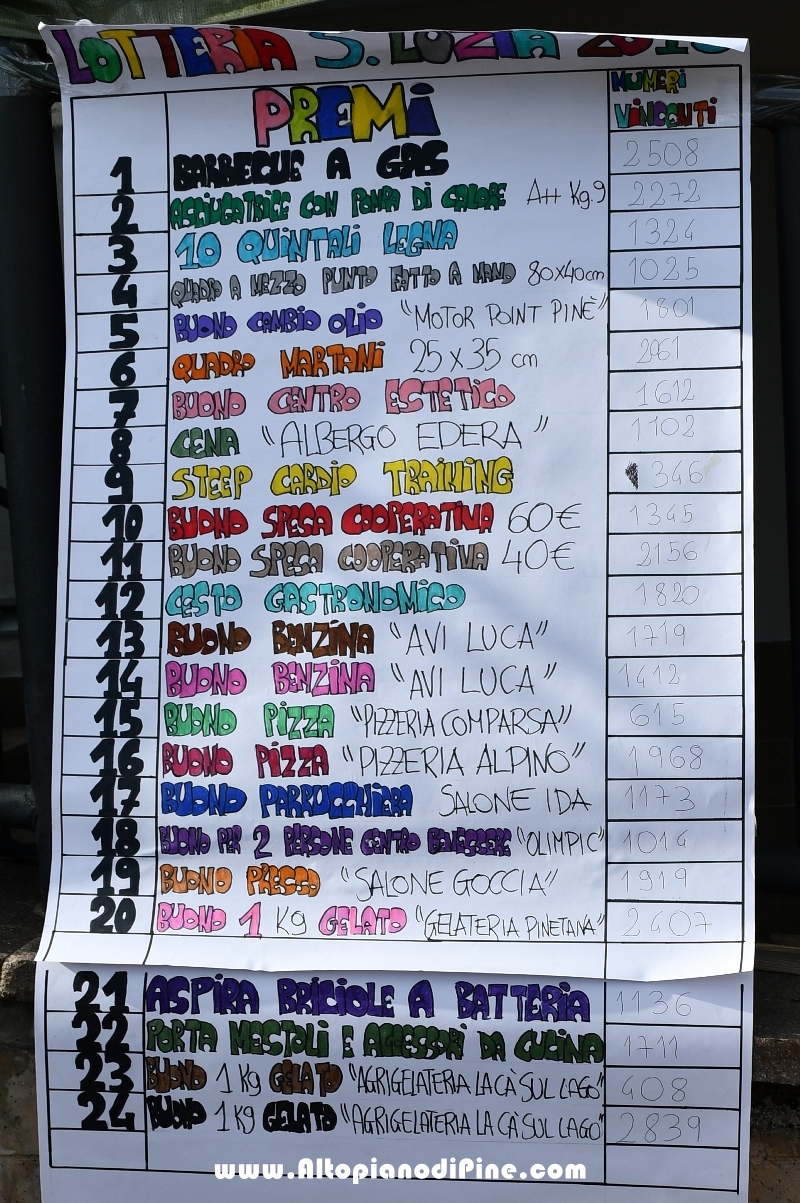 LOTTERIA S. LUZIA
PREMI NUMERI VINCENTI
1 BARBECUE A GAS 2508
2 ASCIUGATRICE CON POMPA DI CALORE A++ Kg.9 2272
3 10 QUINTALI LEGNA 1324
4 QUADRO A MEZZO PUNTO FATTO A MANO 80x40cm 1025
5 BUONO CAMBIO OLIO "MOTOR POINT PINÈ" 1801
6 QUADRO MARTANI 25 x 35 cm
7 BUONO CENTRO ESTETICO 1612
8 CENA "ALBERGO EDERA" 1102
9 STEEP CARDIO TRAINING 346
10 BUONO SPESA COOPERATIVA 60€ 1345
11 BUONO SPESA COOPERATIVA 40€ 2156
12 CESTO GASTRONOMICO 1820
13 BUONO BENZINA "AVI LUCA" 1719
14 BUONO BENZINA "AVI LUCA" 1412
15 BUONO PIZZA "PIZZERIA COMPARSA" 615
16 BUONO PIZZA "PIZZERIA ALPINO" 1968
17 BUONO PARRUCCHIERA SALONE IDA 1173
18 BUONO PER 2 PERSONE CENTRO BENESSERE "OLIMPIC" 1014
19 BUONO PRESSO "SALONE GOCCIA" 1919
20 BUONO 1 Kg GELATO "GELATERIA PINETANA" 2407
21 ASPIRA BRICIOLE A BATTERIA 1136
22 PORTA MESTOLI E ACCESSORI DA CUCINA 1711
23 BUONO 1 Kg GELATO "AGRIGELATERIA LA CÀ SUL LAGO" 408
24 BUONO 1 Kg GELATO "AGRIGELATERIA LA CÀ SUL LAGO" 2839
www.AltopianodiPine.com